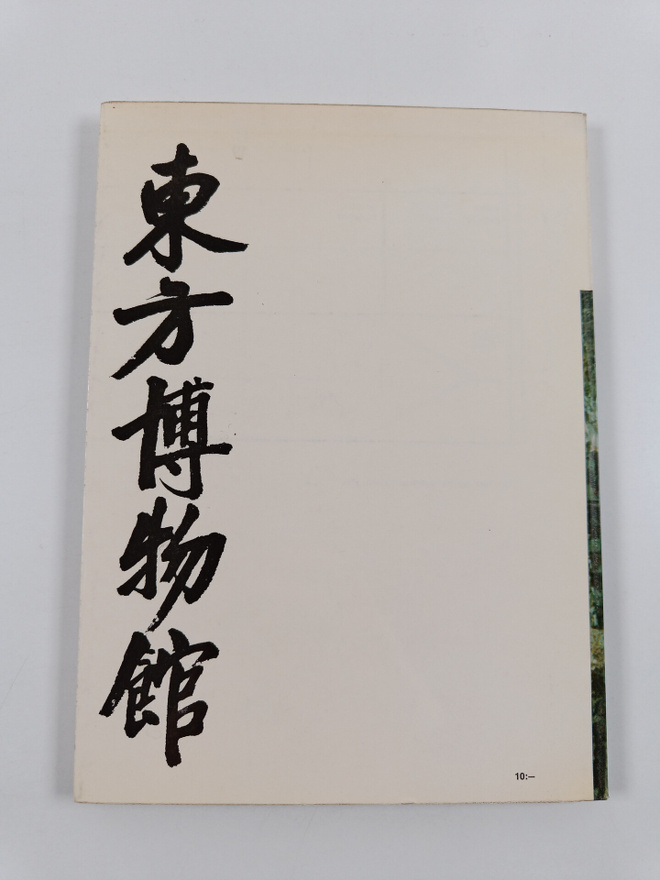 東方博物館
10:—